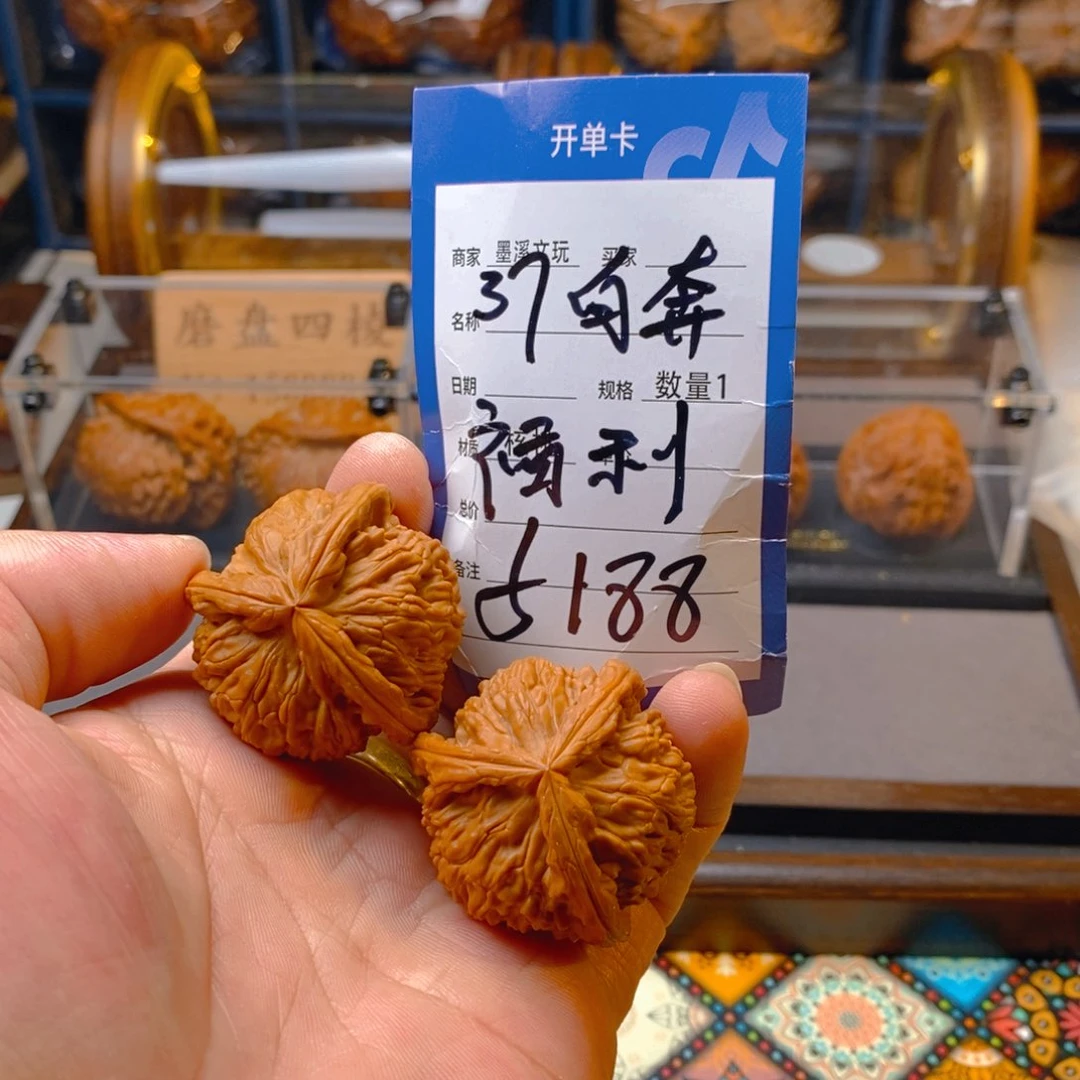 开单卡
商家 墨溪文玩 买家
37白奔
名称
日期 规格 数量1
材质
福利
总价
备注
5188
磨盘四棱